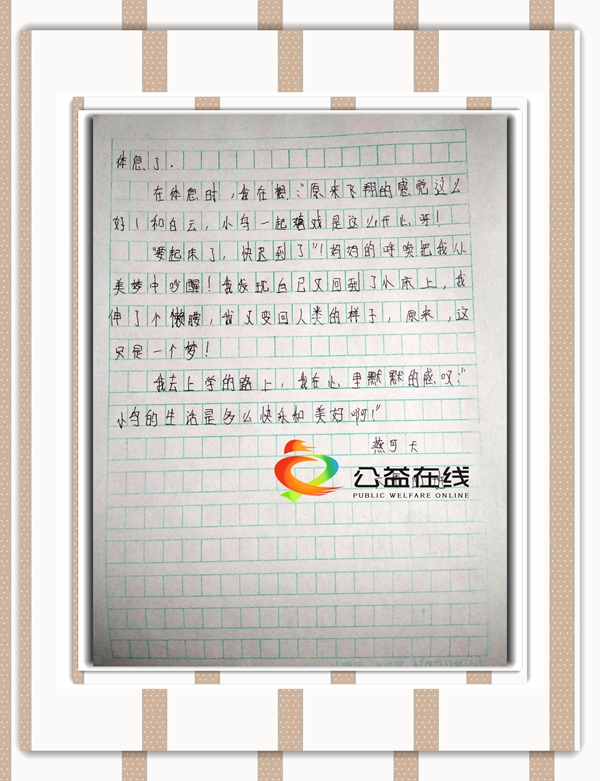 休息了.
在休息时,我在想:“原来飞翔的感觉这么
好!和白云,小鸟一起嬉戏是这么开心呀!
“要起床了,快迟到了”!妈妈的呼唤把我从
美梦中吵醒!我发现自己又回到了小床上,我
伸了个懒腰,我又变回人类的样子,原来,这
只是一个梦!
我去上学的路上,我在心里默默的感叹:“
小鸟的生活是多么快乐和美好啊!”
燕可卡
公益在线
PUBLIC WELFARE ONLINE